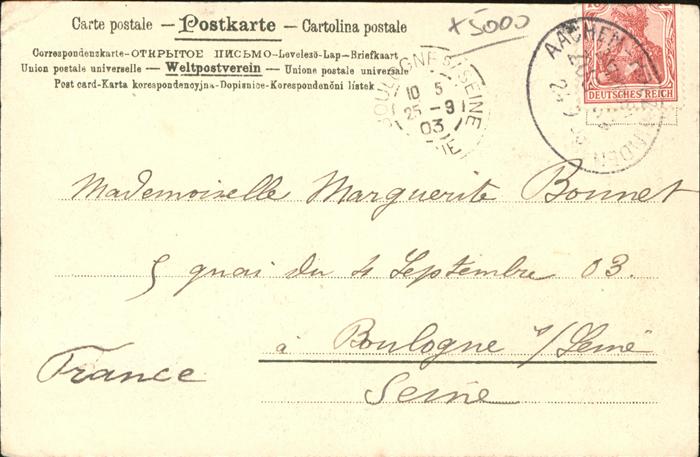 Carte postale — Postkarte — Cartolina postale
x 5000
Correspondenskarte-ОТКРЫТОЕ ПИСЬМО-Levelező-Lap-Briefkaart
Union postale universelle — Weltpostverein — Unione postale universale
Post card-Karta korespondencyjna-Dopisnice-Korespondenční lístek
BOULOGNE S/SEINE
10 5
25 -9
03
AACHEN
DEUTSCHES REICH
Mademoiselle Marguerite Bonnet
5 quai du 4 Septembre 03.
à Boulogne s/Seine
France
Seine